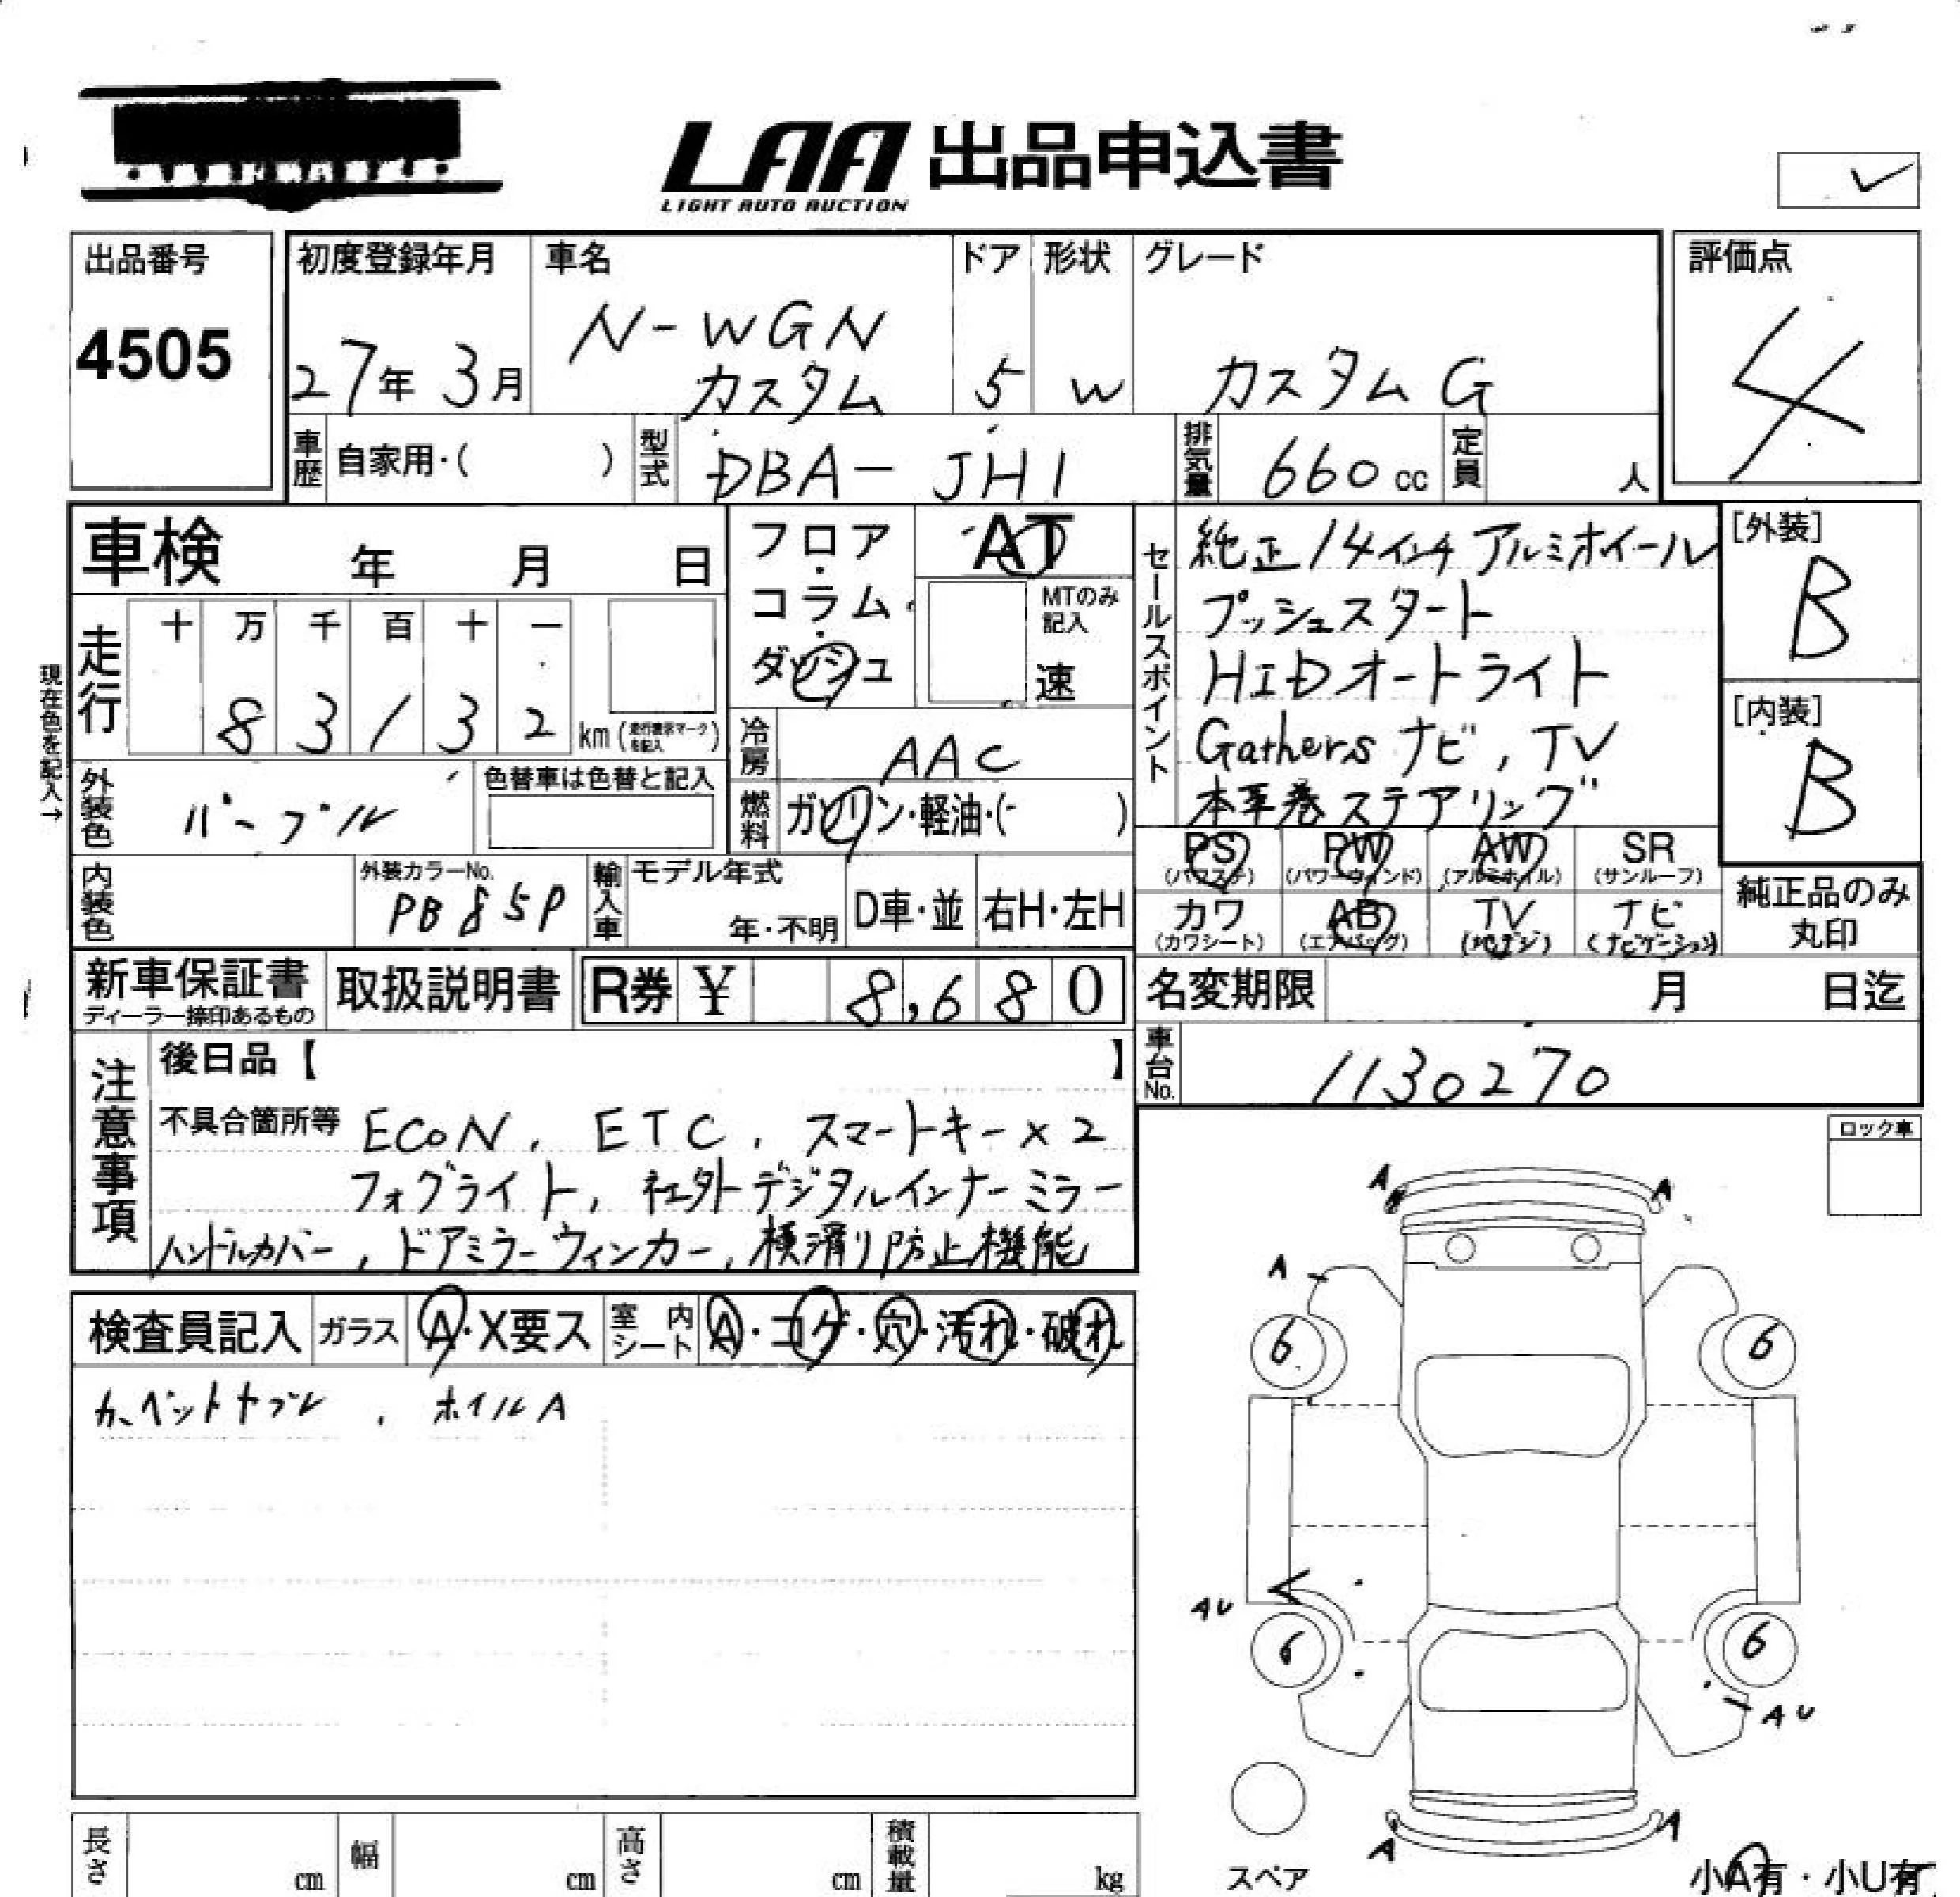 LAA 出品申込書
LIGHT AUTO AUCTION
出品番号
4505
初度登録年月
27年 3月
車名
N-WGN
カスタム
ドア
5
形状
W
グレード
カスタム G
評価点
4
車歴 自家用・( )
型式 DBA- JH1
排気量 660 cc
定員 人
車検 年 月 日
走行
十 万 千 百 十 一
8 3 1 3 2 km(走行表示マークを記入)
現在色を記入→
外装色 パープル
色替車は色替と記入
内装色
外装カラーNo.
PB85P
輸入車
モデル年式
年・不明
D車・並
右H・左H
フロア
・
コラム
・
ダッシュ
AT
MTのみ
記入
速
冷房 AAC
燃料 ガソリン・軽油・( )
セールスポイント
純正14インチアルミホイール
プッシュスタート
HIDオートライト
Gathersナビ, TV
本革巻ステアリング
[外装]
B
[内装]
B
PS PW AW SR
(パワステ) (パワーウィンド) (アルミホイル) (サンルーフ)
カワ AB TV ナビ
(カワシート) (エアバッグ) (地デジ) (ナビゲーション)
純正品のみ
丸印
新車保証書
ディーラー捺印あるもの
取扱説明書
R券 ¥ 8,680
名変期限 月 日迄
車台No. 1130270
注意事項
後日品【 】
不具合箇所等 ECON, ETC, スマートキー×2
フォグライト, 社外デジタルインナーミラー
ハンドルカバー, ドアミラーウィンカー, 横滑り防止機能
ロック車
検査員記入 ガラス A・X要ス 室内シート A・コゲ・穴・汚れ・破れ
カーペットヤブレ, ホイルA
A A
A
6 6
AU
6 6
AU
A A
スペア
小A有・小U有
長さ cm 幅 cm 高さ cm 積載量 kg